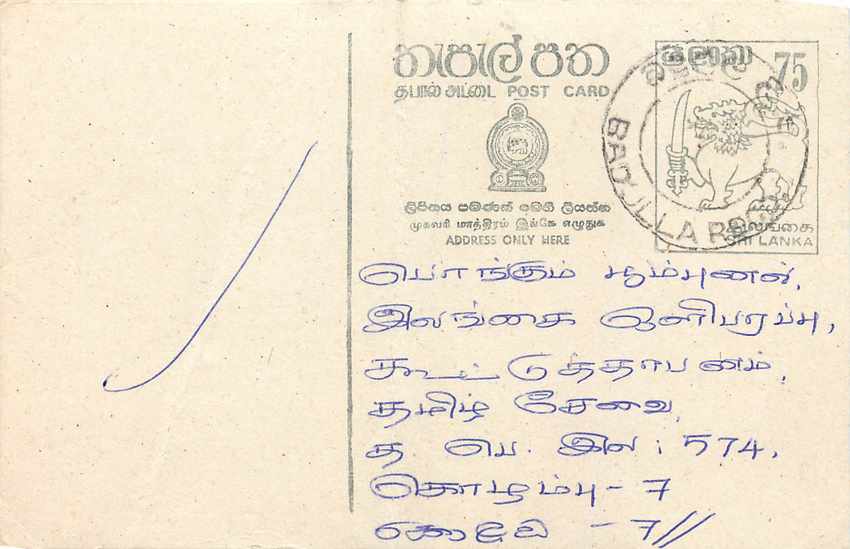 තැපැල් පත
தபால் அட்டை POST CARD
ලිපිනය පමණක් මෙහි ලියන්න
முகவரி மாத்திரம் இங்கே எழுதுக
ADDRESS ONLY HERE
ශ්‍රී ලංකා 75
இலங்கை
SRI LANKA
BADULLA
பொங்கும் பூம்புனல்,
இலங்கை ஒளிபரப்பு,
கூட்டுத்தாபனம்,
தமிழ் சேவை,
த. பெ. இல: 574,
கொழும்பு - 7
කොළඹ - 7//